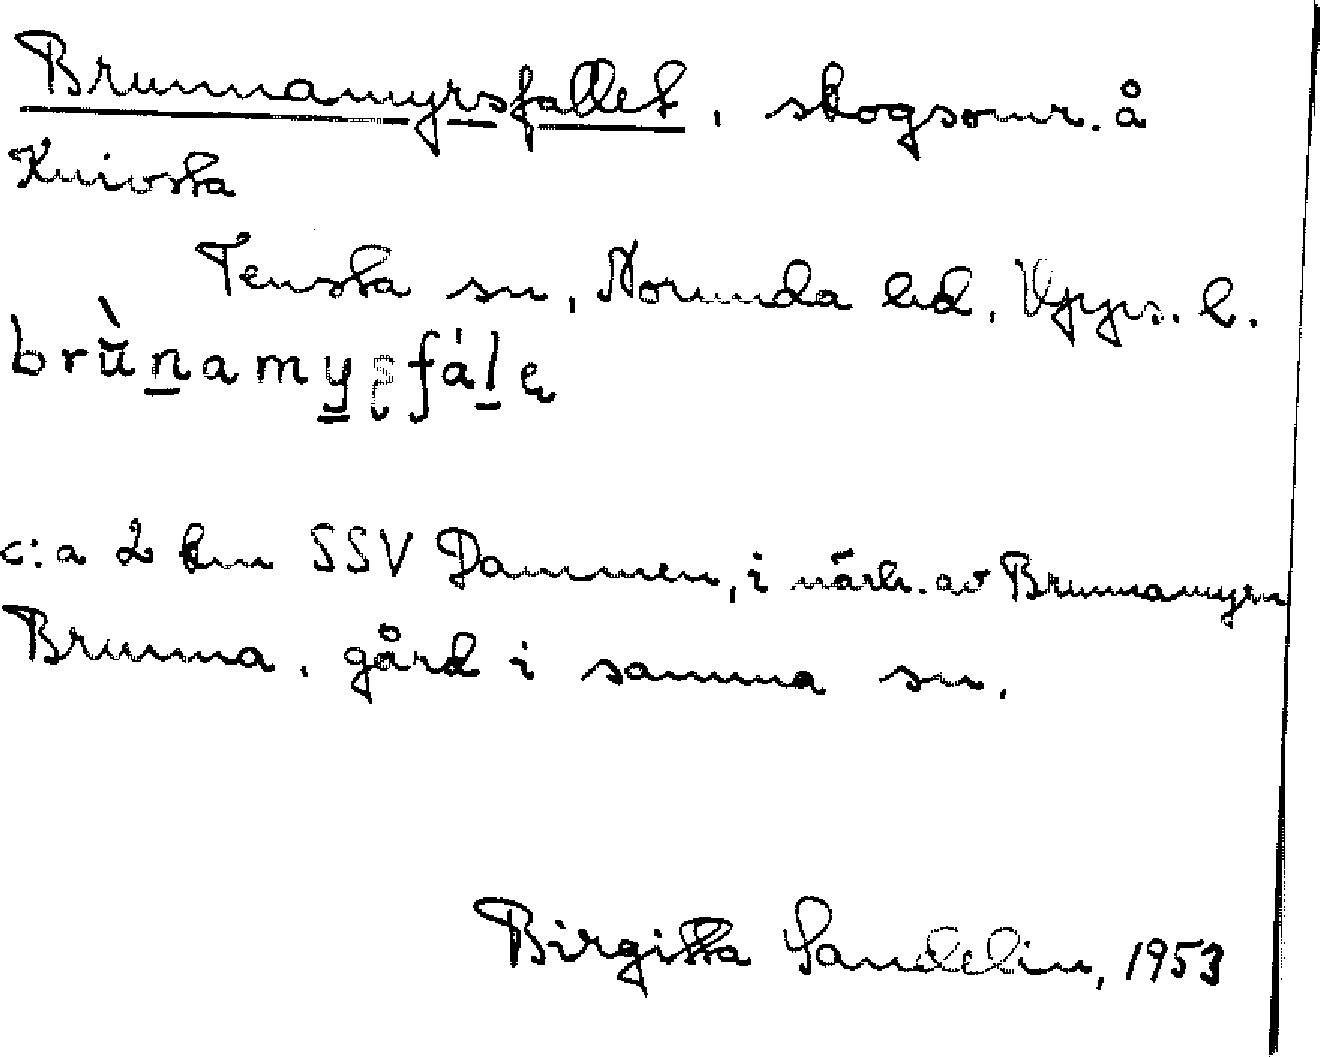 Brunnamyrsfallet, skogsomr. å
Knivsta
Tensta sn, Norunda hd, Upps. l.
brùnamyʂfálę
c:a 2 km SSV Dammen, i närh. av Brunnamyrn
Brunna, gård i samma sn.
Birgitta Sandelin, 1953